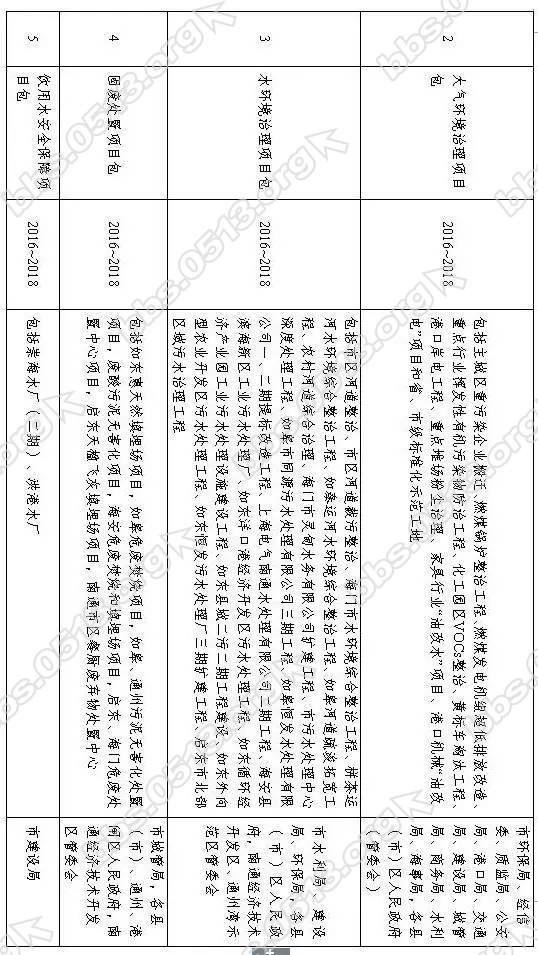 2
大气环境治理项目
包
2016~2018
包括主城区重污染企业搬迁、燃煤锅炉整治工程、燃煤发电机组超低排放改造、
重点行业挥发性有机污染物防治工程、化工园区VOCs整治、黄标车淘汰工程、
港口岸电工程、重点堆场粉尘治理、家具行业“油改水”项目、港口机械“油改
电”项目和省、市级标准化示范工地
市环保局、经信
委、质监局、公安
局、港口局、交通
局、建设局、城管
局、商务局、水利
局、海事局，各县
（市）区人民政府
（管委会）
3
水环境治理项目包
2016~2018
包括市区河道整治、市区河道截污整治、海门市水环境综合整治工程、栟茶运
河水环境综合整治工程、如泰运河水环境综合整治工程、如皋河道疏浚拓宽工
程、农村河道综合治理、海门市灵甸水务有限公司扩建工程、市污水处理中心
深度处理工程、如皋市同源污水处理有限公司三期工程、如皋恒发水处理有限
公司一、二期提标改造工程、上海电气南通水处理有限公司二期工程、海安县
滨海新区工业污水处理厂、如东洋口港经济开发区污水处理工程、如东循环经
济产业园工业污水处理设施建设工程、如东县城二污二期工程建设、如东外向
型农业开发区污水处理工程、如东恒发污水处理厂三期扩建工程、启东市北部
区域污水治理工程
市水利局、建设
局、环保局，各县
（市）区人民政
府，南通经济技术
开发区、通州湾示
范区管委会
4
固废处置项目包
2016~2018
包括如东惠天然填埋场项目，如皋危废焚烧项目，如皋、通州污泥无害化处置
项目，废酸污泥无害化项目，海安危废焚烧和填埋场项目，启东、海门危废处
置中心项目，启东天楹飞灰填埋场项目，南通市区餐厨废弃物处置中心
市城管局，各县
（市）、通州、港
闸区人民政府，南
通经济技术开发
区管委会
5
饮用水安全保障项
目包
2016~2018
包括崇海水厂（二期）、洪港水厂
市建设局
bbs.0513.org